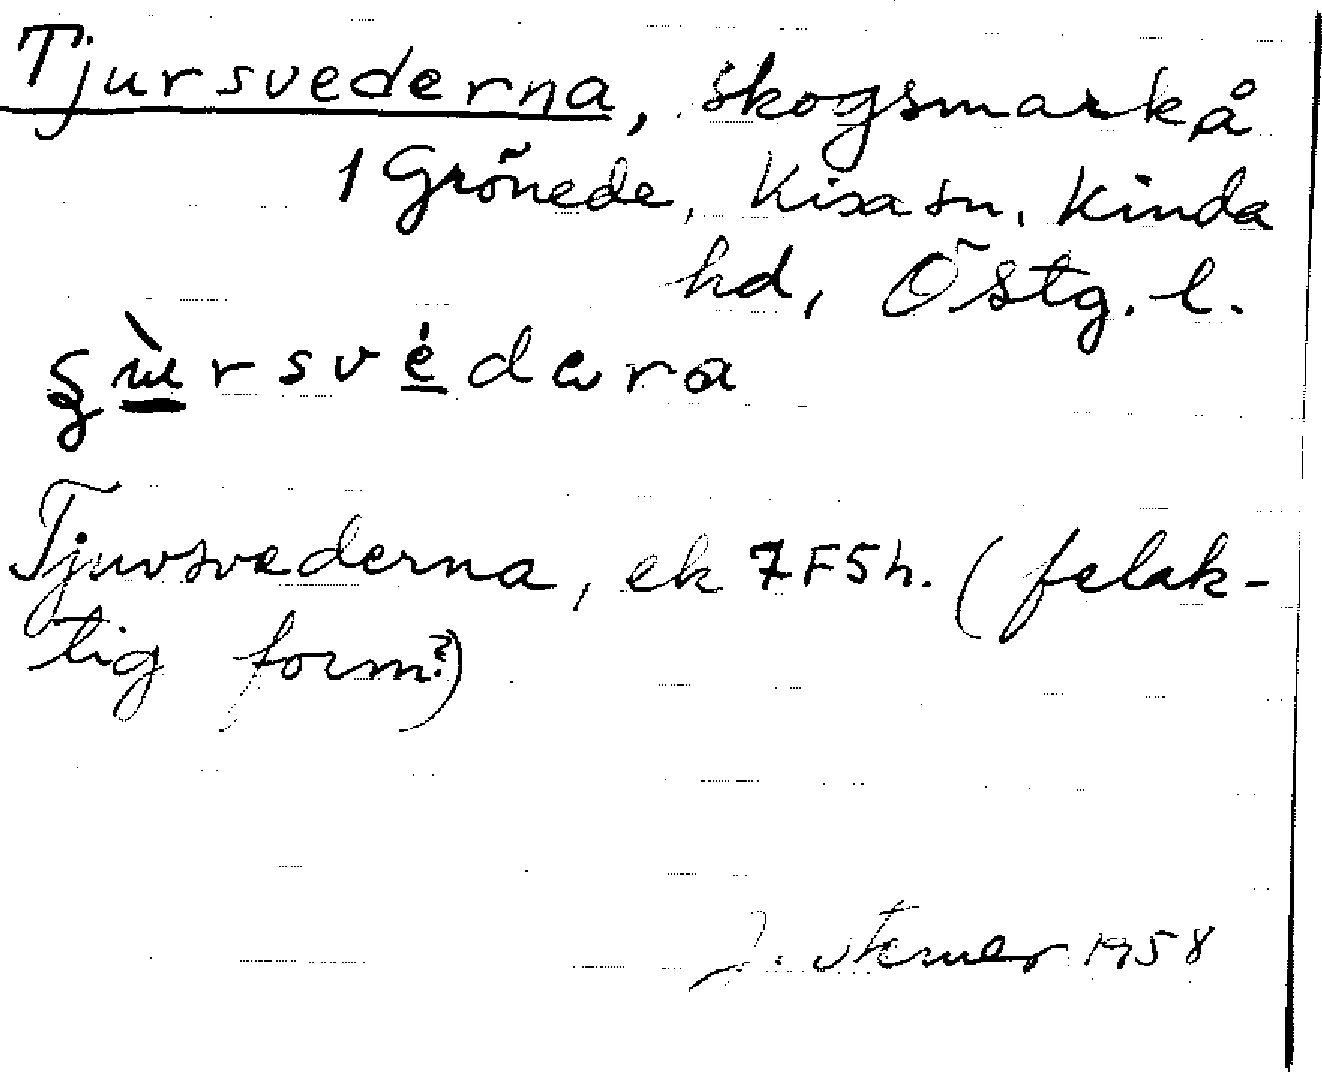 Tjursvederna, skogsmark å
1 Grönede, Kisa sn, Kinda
hd, Östg. l.
Tjuvsvederna, ek 7F5h. (felak-
tig form?)
1958